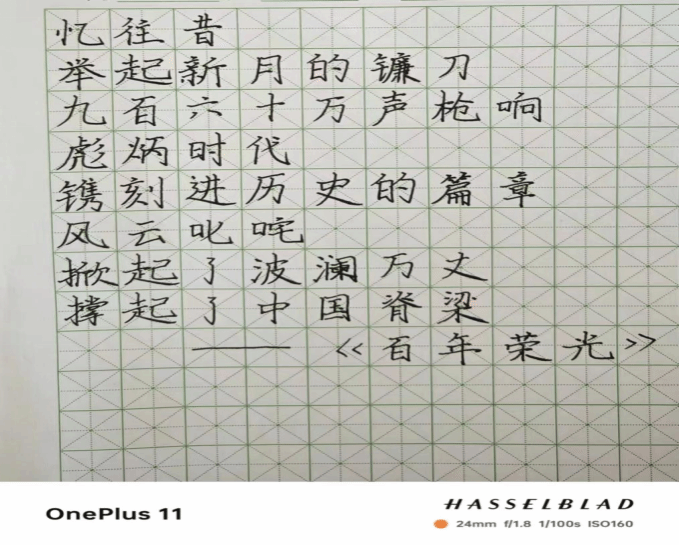 忆往昔
举起新月的镰刀
九百六十万声枪响
彪炳时代
镌刻进历史的篇章
风云叱咤
掀起了波澜万丈
撑起了中国脊梁
——《百年荣光》
OnePlus 11
HASSELBLAD
24mm f/1.8 1/100s ISO160